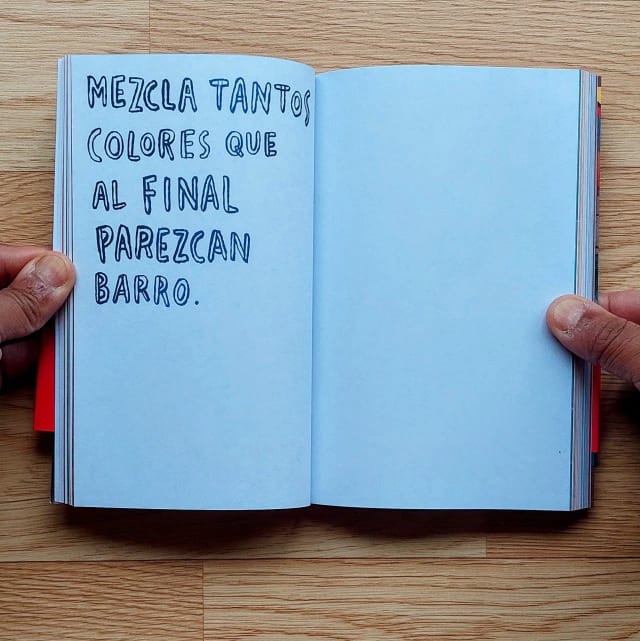 MEZCLA TANTOS
COLORES QUE
AL FINAL
PAREZCAN
BARRO.